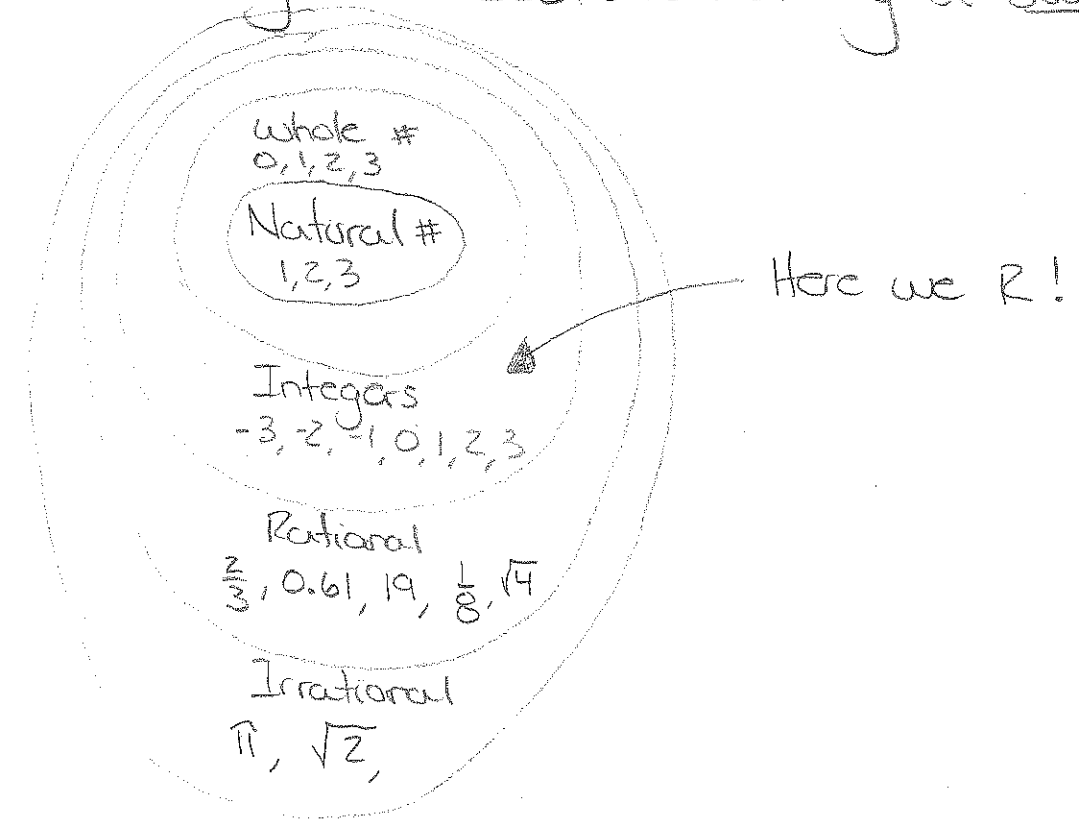 Whole #
0, 1, 2, 3
Natural #
1, 2, 3
Here we R!
Integers
-3, -2, -1, 0, 1, 2, 3
Rational
2/3, 0.61, 19, 1/8, √4
Irrational
π, √2,